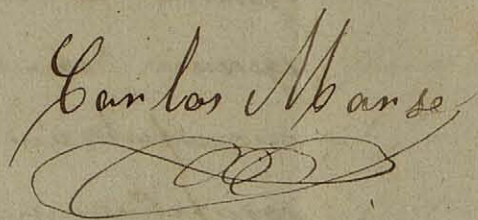 Carlos Manse